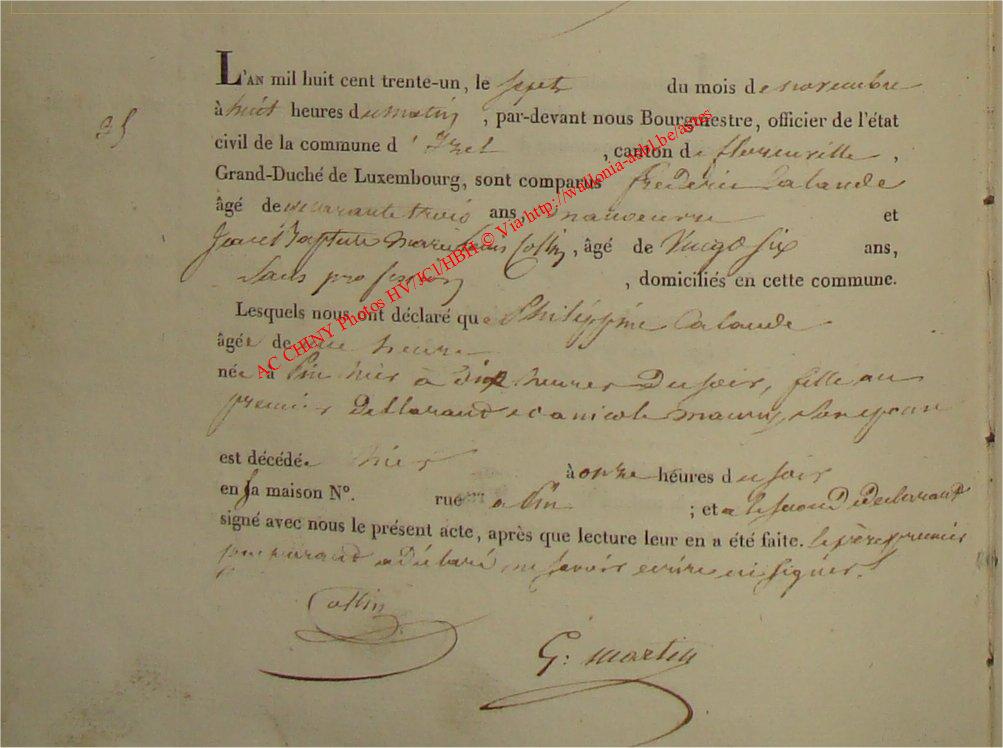 35
L'AN mil huit cent trente-un, le sept du mois de novembre
à huit heures du matin, par-devant nous Bourgmestre, officier de l'état
civil de la commune d'Izel, canton de florenville,
Grand-Duché de Luxembourg, sont comparus frederic Calande
âgé de quarante trois ans, manoeuvre et
Jean Baptiste Marie Louis Collin, âgé de Vingt Six ans,
Sans profession, domiciliés en cette commune.
Lesquels nous ont déclaré que Philippine Calande
âgée de une heure
née à Pin hier à dix heures du soir, fille au
premier declarant et a nicole son epouse
est décédée hier à onze heures du soir
en sa maison N°. rue a Pin ; et a le second declarant
signé avec nous le présent acte, après que lecture leur en a été faite. le père premier
comparant a déclaré ne savoir ecrire ni signer.
Collin
G: martin
AC CHINY Photos HV/JCl/HBH © Via http://wallonia-asbl.be/actes